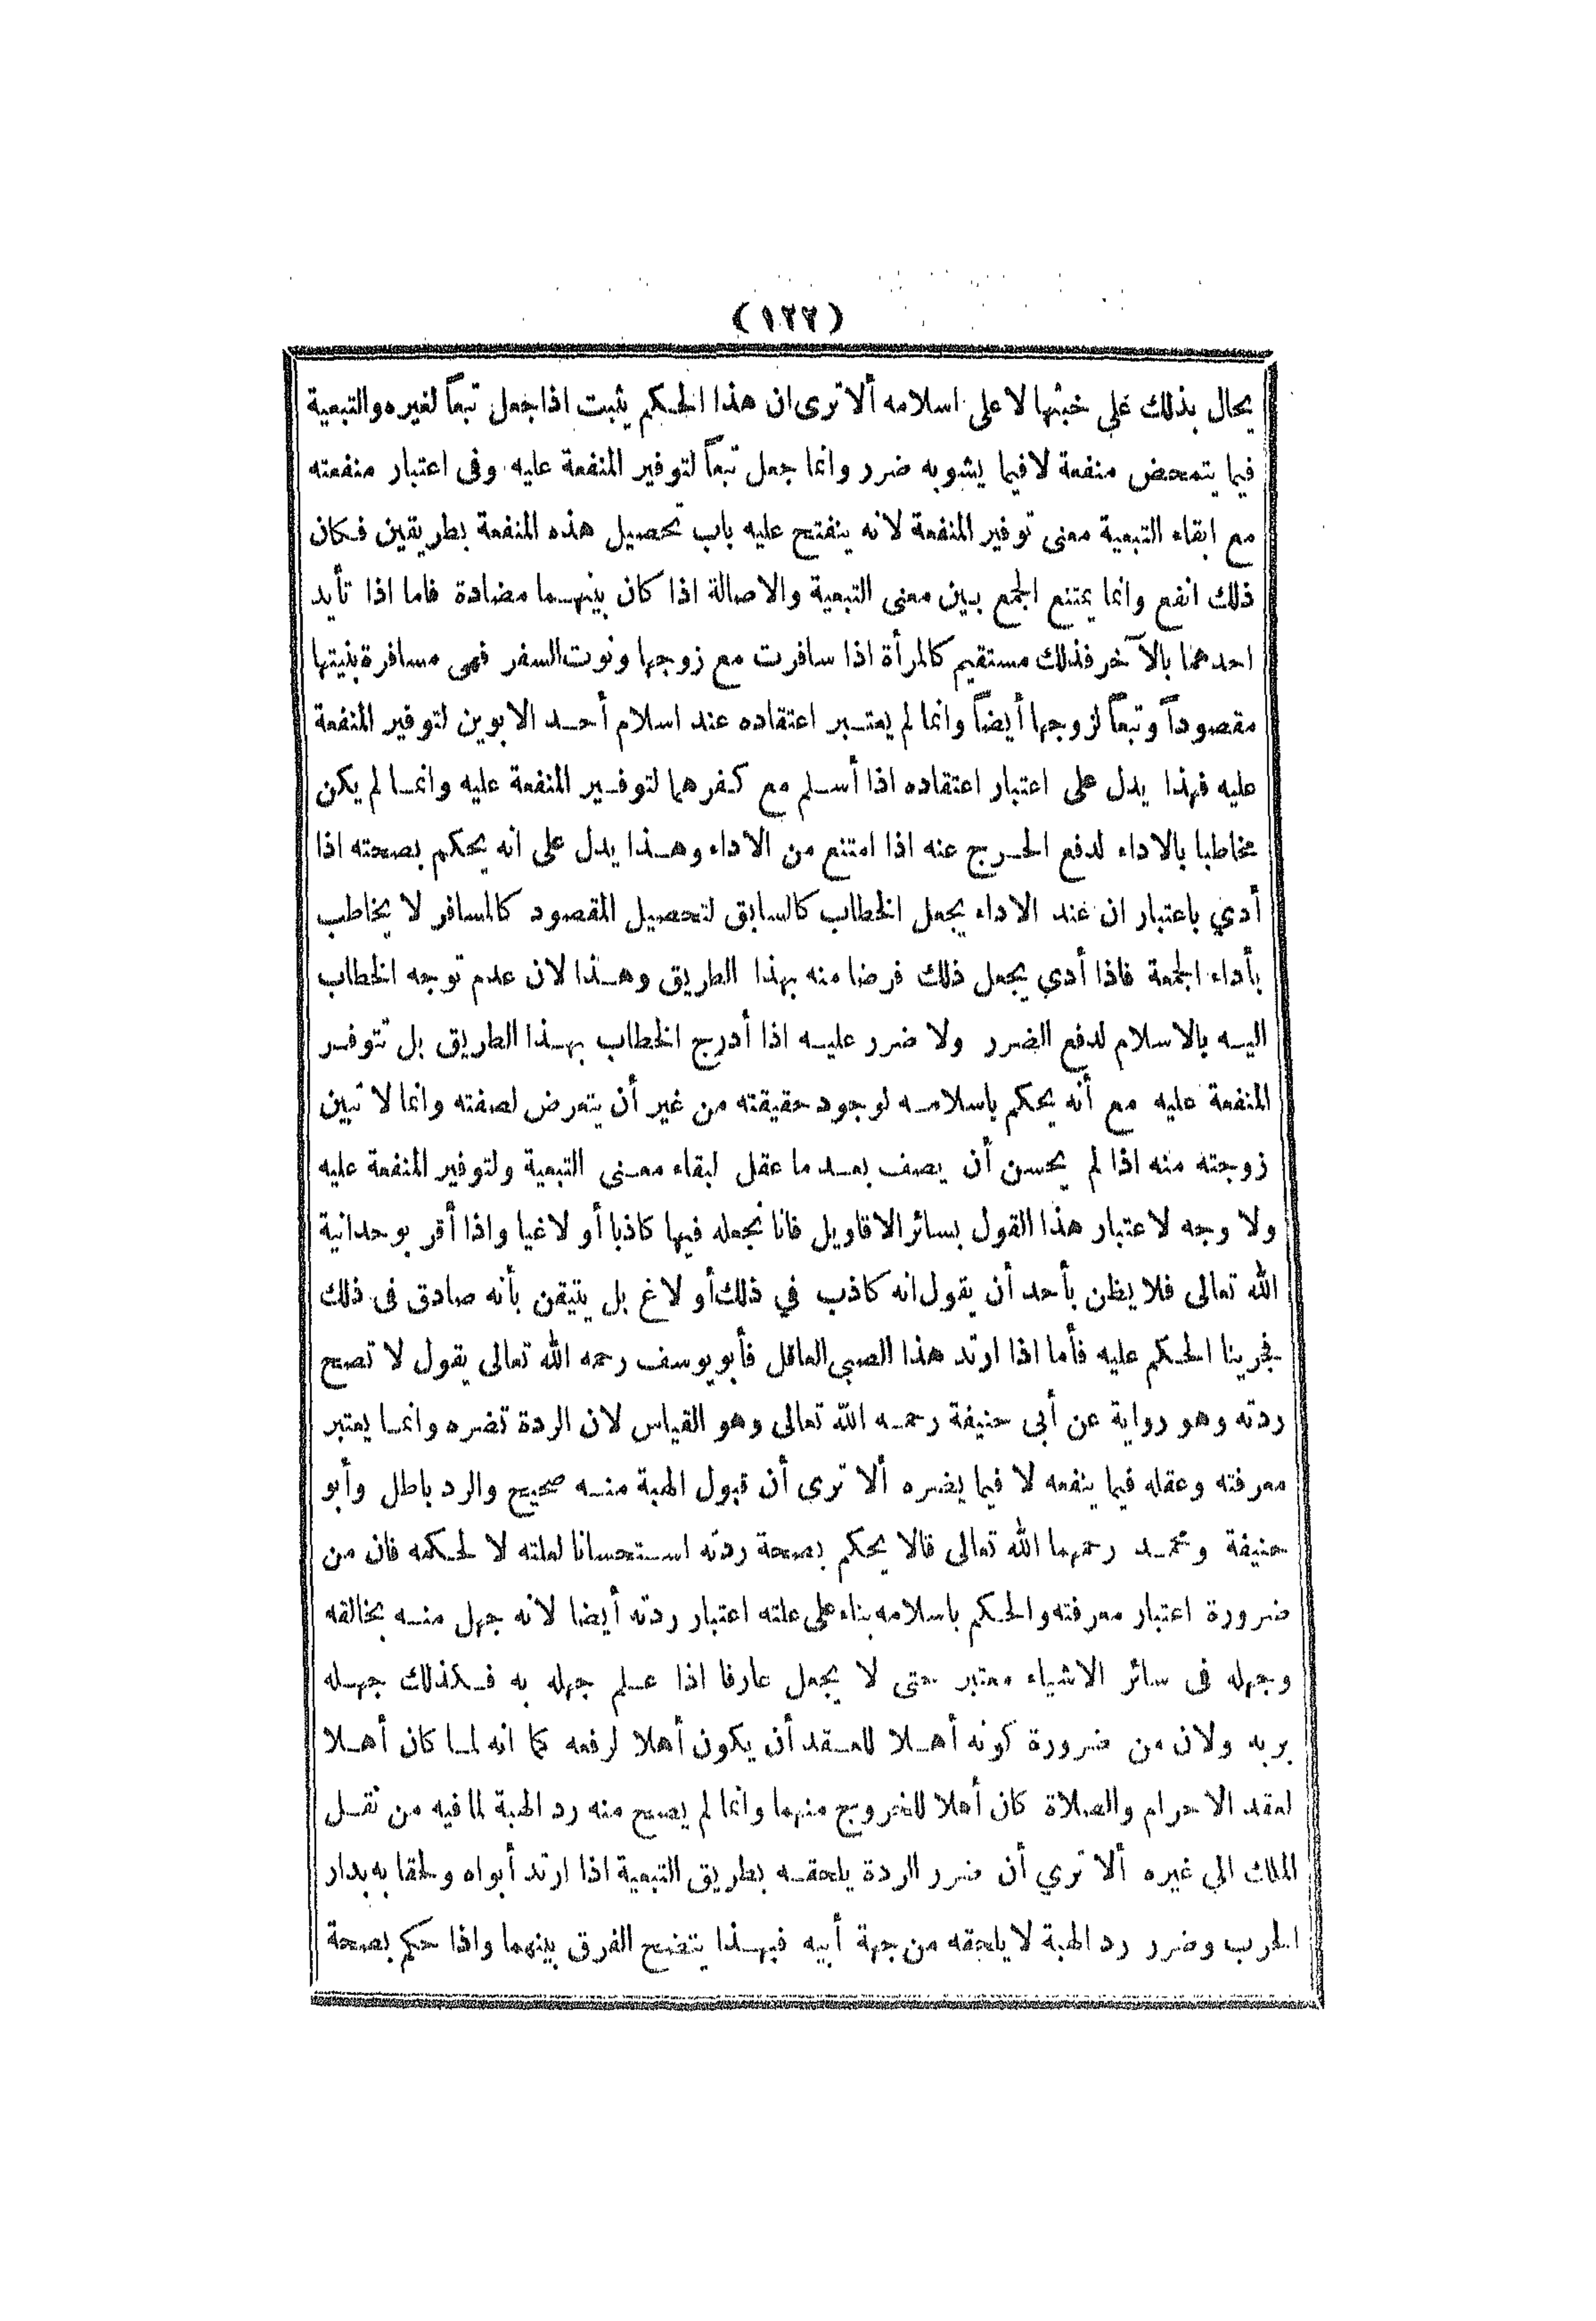 (١٢٢)
يحال بذلك على خبثها لا على اسلامه ألا ترى ان هذا الحكم يثبت اذا جعل تبعاً لغيره والتبعية
فيما يتمحض منفعة لا فيما يشوبه ضرر وانما جعل تبعاً لتوفير المنفعة عليه وفى اعتبار منفعته
مع ابقاء التبعية معنى توفير المنفعة لانه ينفتح عليه باب تحصيل هذه المنفعة بطريقين فكان
ذلك انفع وانما يمتنع الجمع بين معنى التبعية والاصالة اذا كان بينهما مضادة فاما اذا تأيد
احدهما بالآخر فذلك مستقيم كالمرأة اذا سافرت مع زوجها ونوت السفر فهى مسافرة بنيتها
مقصوداً وتبعاً لزوجها أيضاً وانما لم يعتبر اعتقاده عند اسلام أحد الابوين لتوفير المنفعة
عليه فهذا يدل على اعتبار اعتقاده اذا أسلم مع كفرهما لتوفير المنفعة عليه وانما لم يكن
مخاطبا بالاداء لدفع الحرج عنه اذا امتنع من الاداء وهذا يدل على انه يحكم بصحته اذا
أدي باعتبار ان عند الاداء يجعل الخطاب كالسابق لتحصيل المقصود كالمسافر لا يخاطب
بأداء الجمعة فاذا أدي يجعل ذلك فرضا منه بهذا الطريق وهذا لان عدم توجه الخطاب
اليه بالاسلام لدفع الضرر ولا ضرر عليه اذا أدرج الخطاب بهذا الطريق بل تتوفر
المنفعة عليه مع أنه يحكم باسلامه لوجود حقيقته من غير أن يتعرض لصفته وانما لا تبين
زوجته منه اذا لم يحسن أن يصف بعد ما عقل لبقاء معنى التبعية ولتوفير المنفعة عليه
ولا وجه لاعتبار هذا القول بسائر الاقاويل فانا نجعله فيها كاذبا أو لاغيا واذا أقر بوحدانية
الله تعالى فلا يظن بأحد أن يقول انه كاذب في ذلك أو لاغ بل يتيقن بأنه صادق فى ذلك
فجرينا الحكم عليه فأما اذا ارتد هذا الصبى العاقل فأبو يوسف رحمه الله تعالى يقول لا تصح
ردته وهو رواية عن أبى حنيفة رحمه الله تعالى وهو القياس لان الردة تضره وانما يعتبر
معرفته وعقله فيما ينفعه لا فيما يضره ألا ترى أن قبول الهبة منه صحيح والرد باطل وأبو
حنيفة ومحمد رحمهما الله تعالى قالا يحكم بصحة ردته استحسانا لعلته لا لحكمه فان من
ضرورة اعتبار معرفته والحكم باسلامه بناء على علته اعتبار ردته أيضا لانه جهل منه بخالقه
وجهله فى سائر الاشياء معتبر حتى لا يجعل عارفا اذا علم جهله به فكذلك جهله
بربه ولان من ضرورة كونه أهلا للعقد أن يكون أهلا لرفعه كما انه لما كان أهلا
لعقد الاحرام والصلاة كان أهلا للخروج منهما وانما لم يصح منه رد الهبة لما فيه من نقل
الملك الي غيره ألا تري أن ضرر الردة يلحقه بطريق التبعية اذا ارتد أبواه ولحقا به بدار
الحرب وضرر رد الهبة لا يلحقه من جهة أبيه فبهذا يتضح الفرق بينهما واذا حكم بصحة